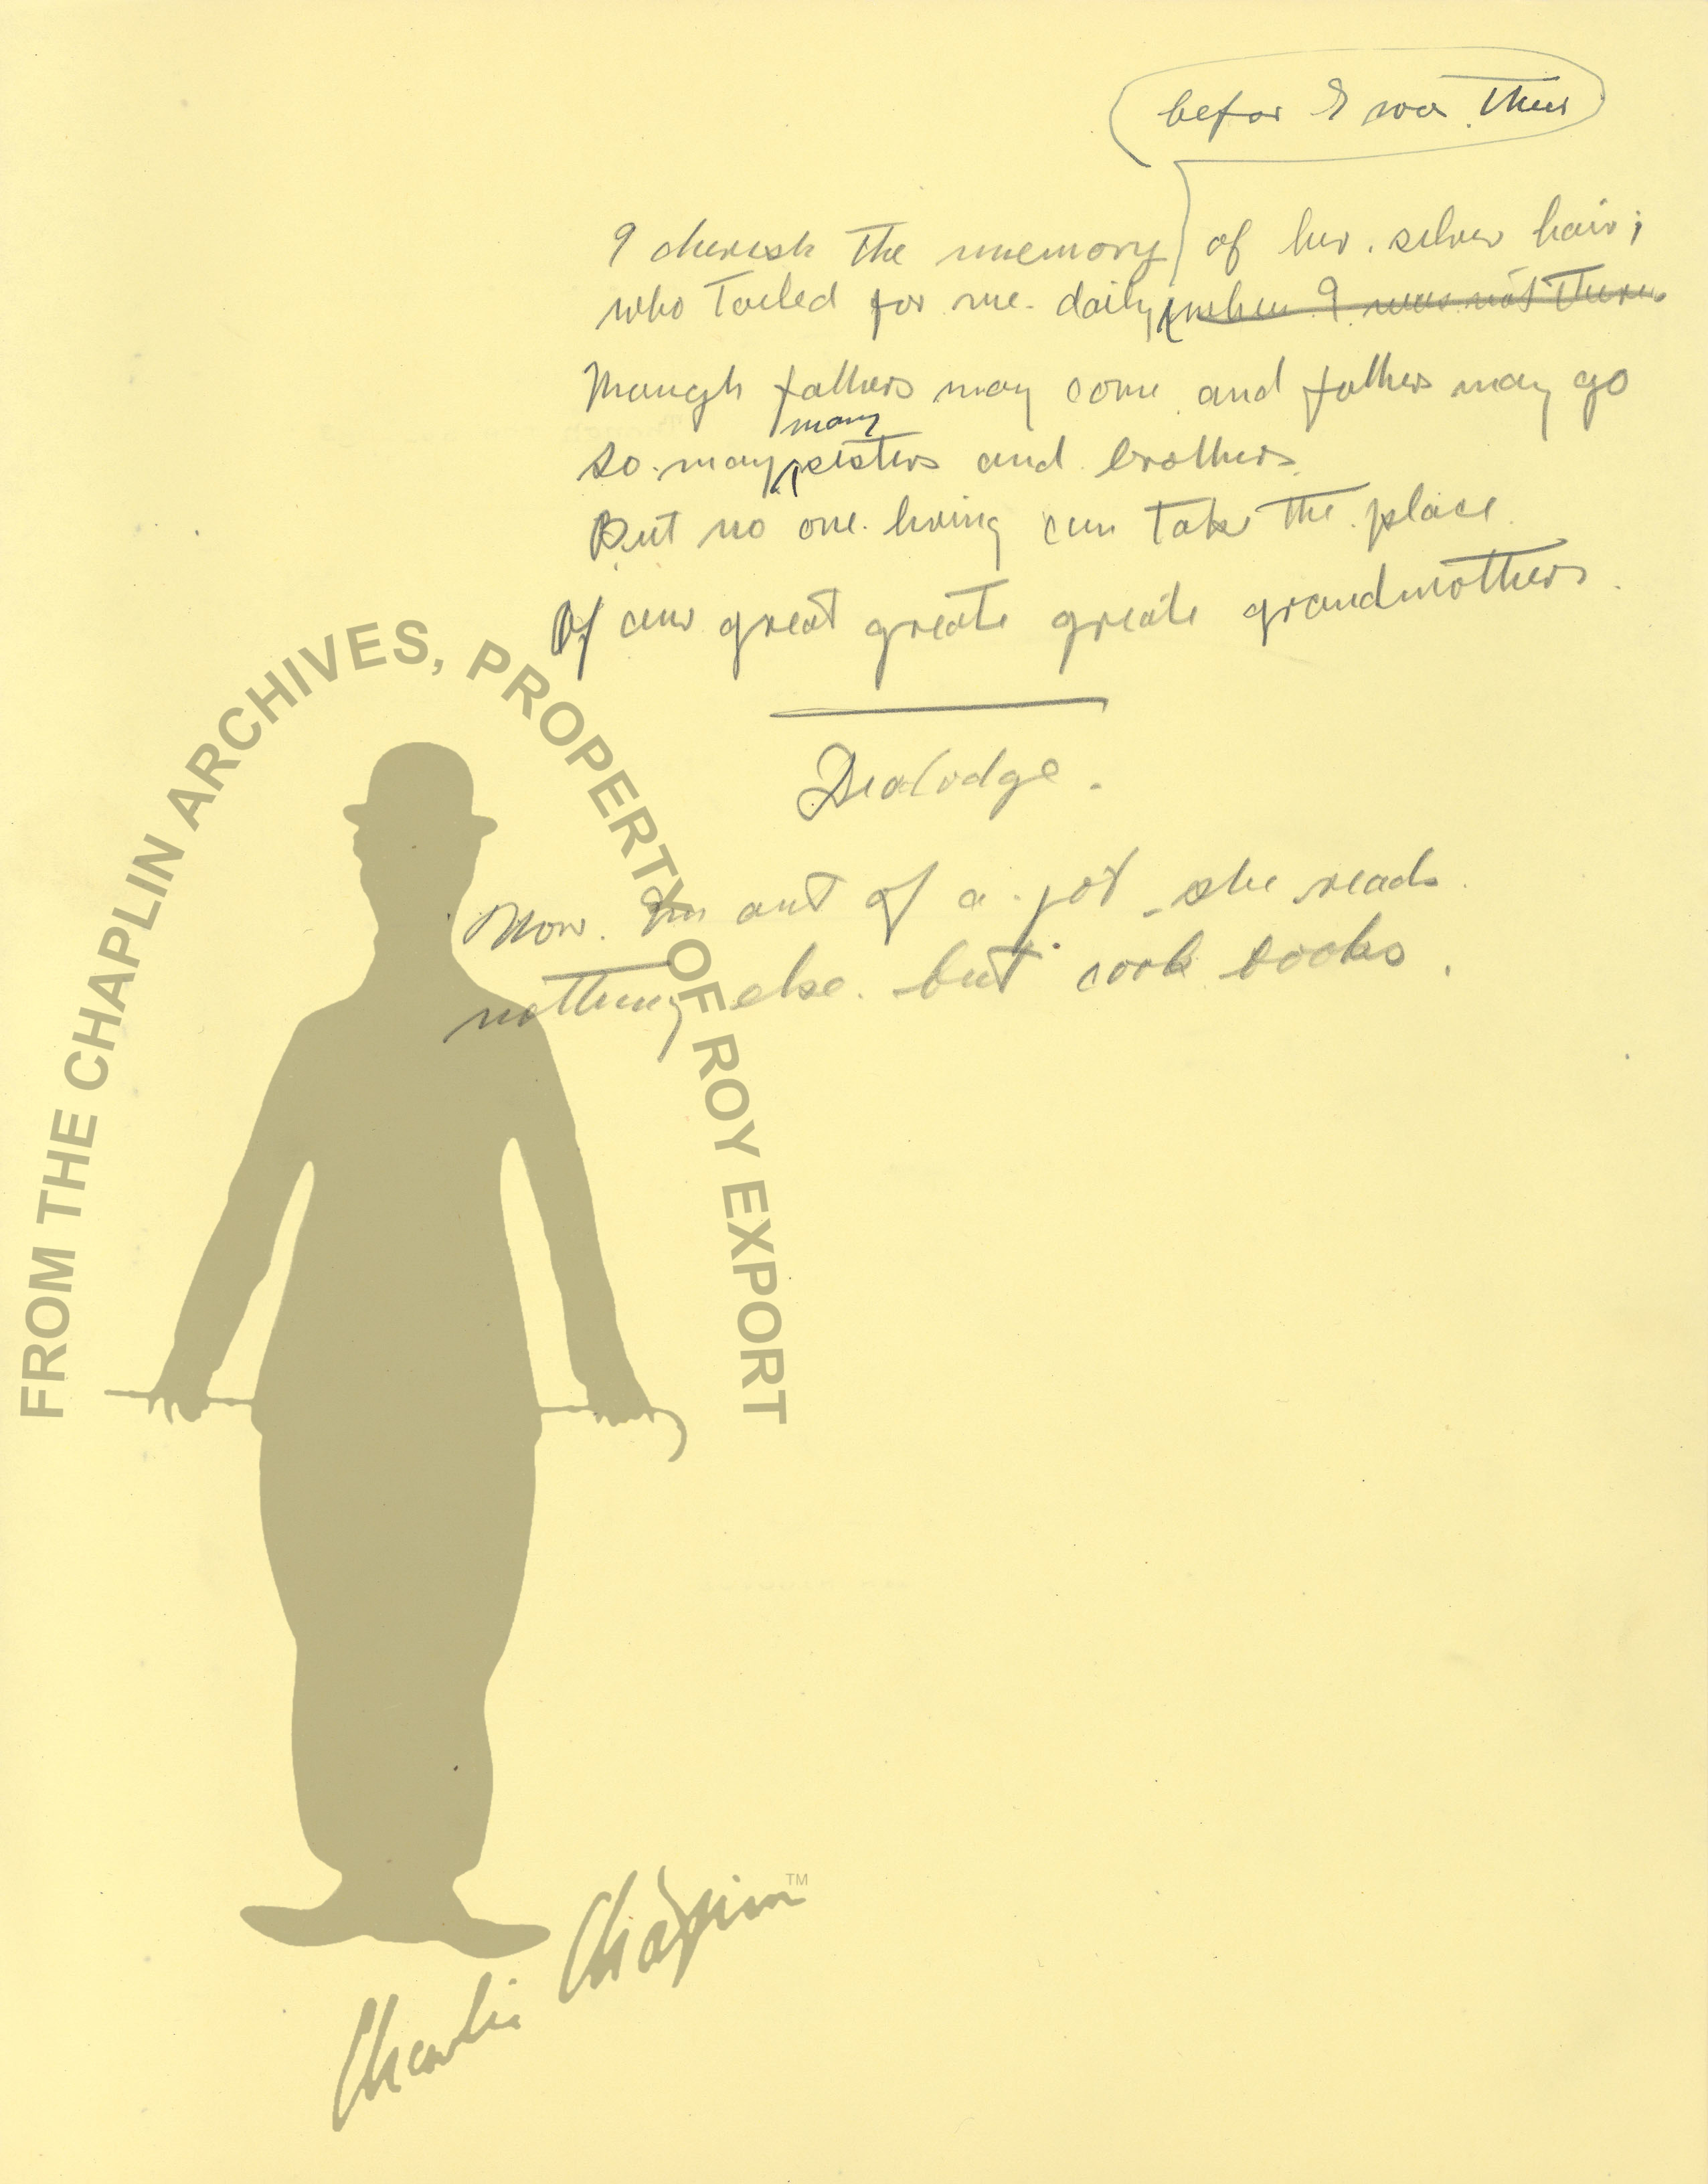 befor I was there
I cherish the memory of her silver hair;
who toiled for me daily, when I was not there
Though fathers may come and fathers may go
many
So may sisters and brothers.
But no one living can take the place
Of our great greate greate grandmothers.
Dialodge.
Now I'm out of a job she reads
nothing else but cook books.
FROM THE CHAPLIN ARCHIVES, PROPERTY OF ROY EXPORT
Charlie Chaplin TM